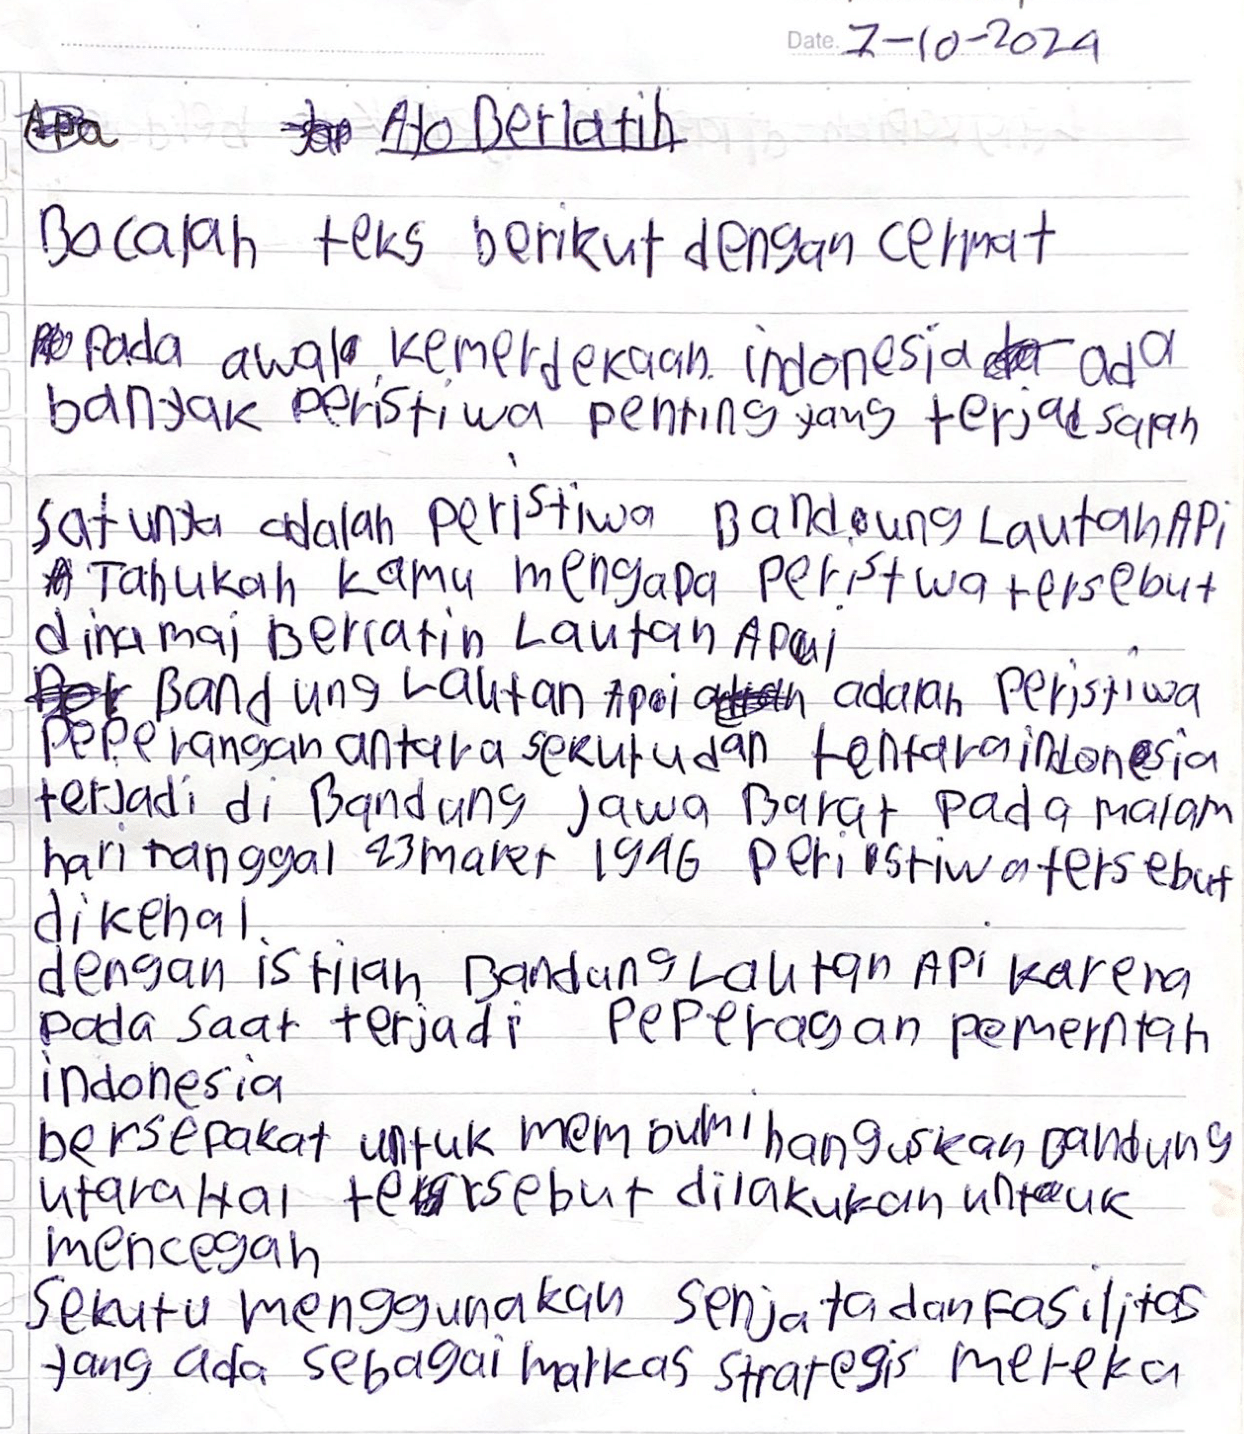 Date. 7-10-2024
Ayo Berlatih
Bacalah teks berikut dengan cermat
Pada awal kemerdekaan indonesia ada
banyak peristiwa penting yang terjadi salah
satunya adalah peristiwa Bandoung Lautan APi
Tahukah kamu mengapa peristwa tersebut
dinamai Berlatin Lautan Apai
Band ung Lautan Apoi adalah Peristiwa
PePerangan antara sekutu dan tentara indonesia
terjadi di Bandung Jawa Barat pada malam
hari tanggal 23 maret 1946 peristiwa tersebut
dikenal.
dengan istilah Bandung Lautan APi karena
pada saat terjadi PePeragan pemerntah
indonesia
bersepakat untuk membumi hanguskan Bandung
utara Hal tersebut dilakukan untuk
mencegah
Sekutu menggunakan senjata dan Fasilitas
yang ada sebagai markas strategis mereka